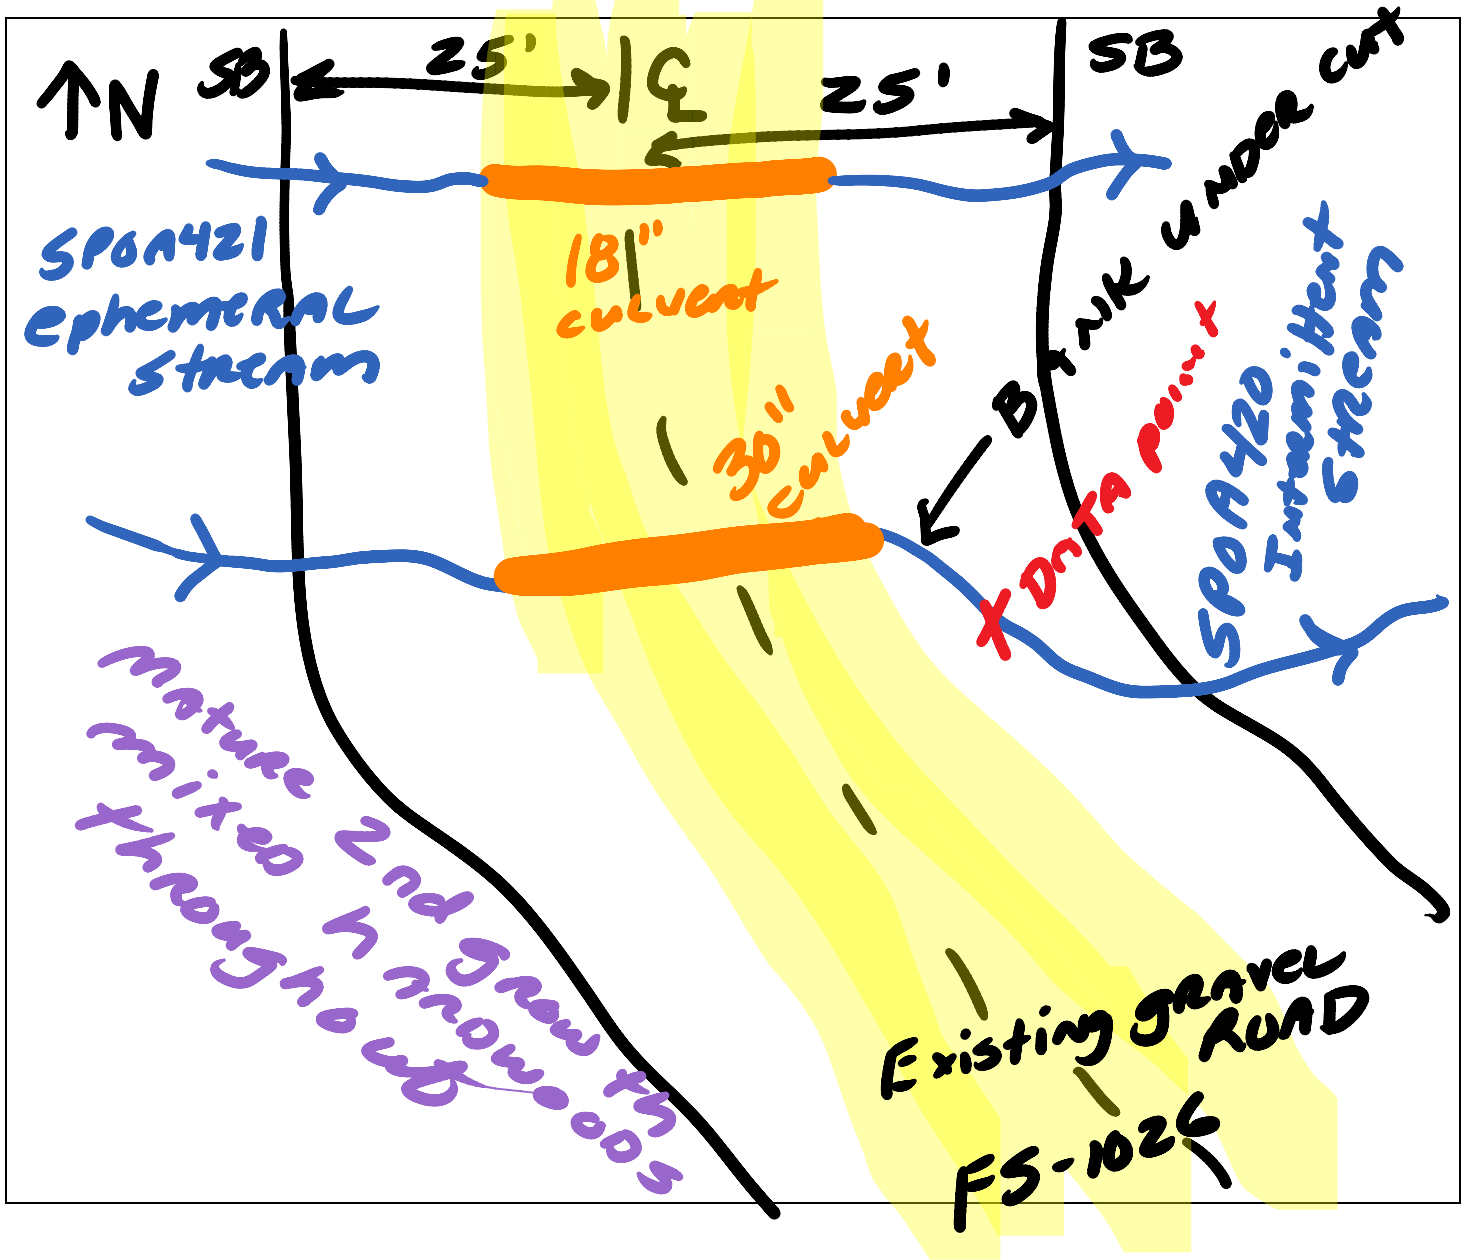 ↑N
SB
25'
℄
25'
SB
BANK UNDER cut
SPOA421
ephemeral
stream
18"
culvert
30"
culvert
DATA point
SPOA420
Intermittent
Stream
mature 2nd growth
mixed hardwoods
throughout
Existing gravel
ROAD
FS-1026